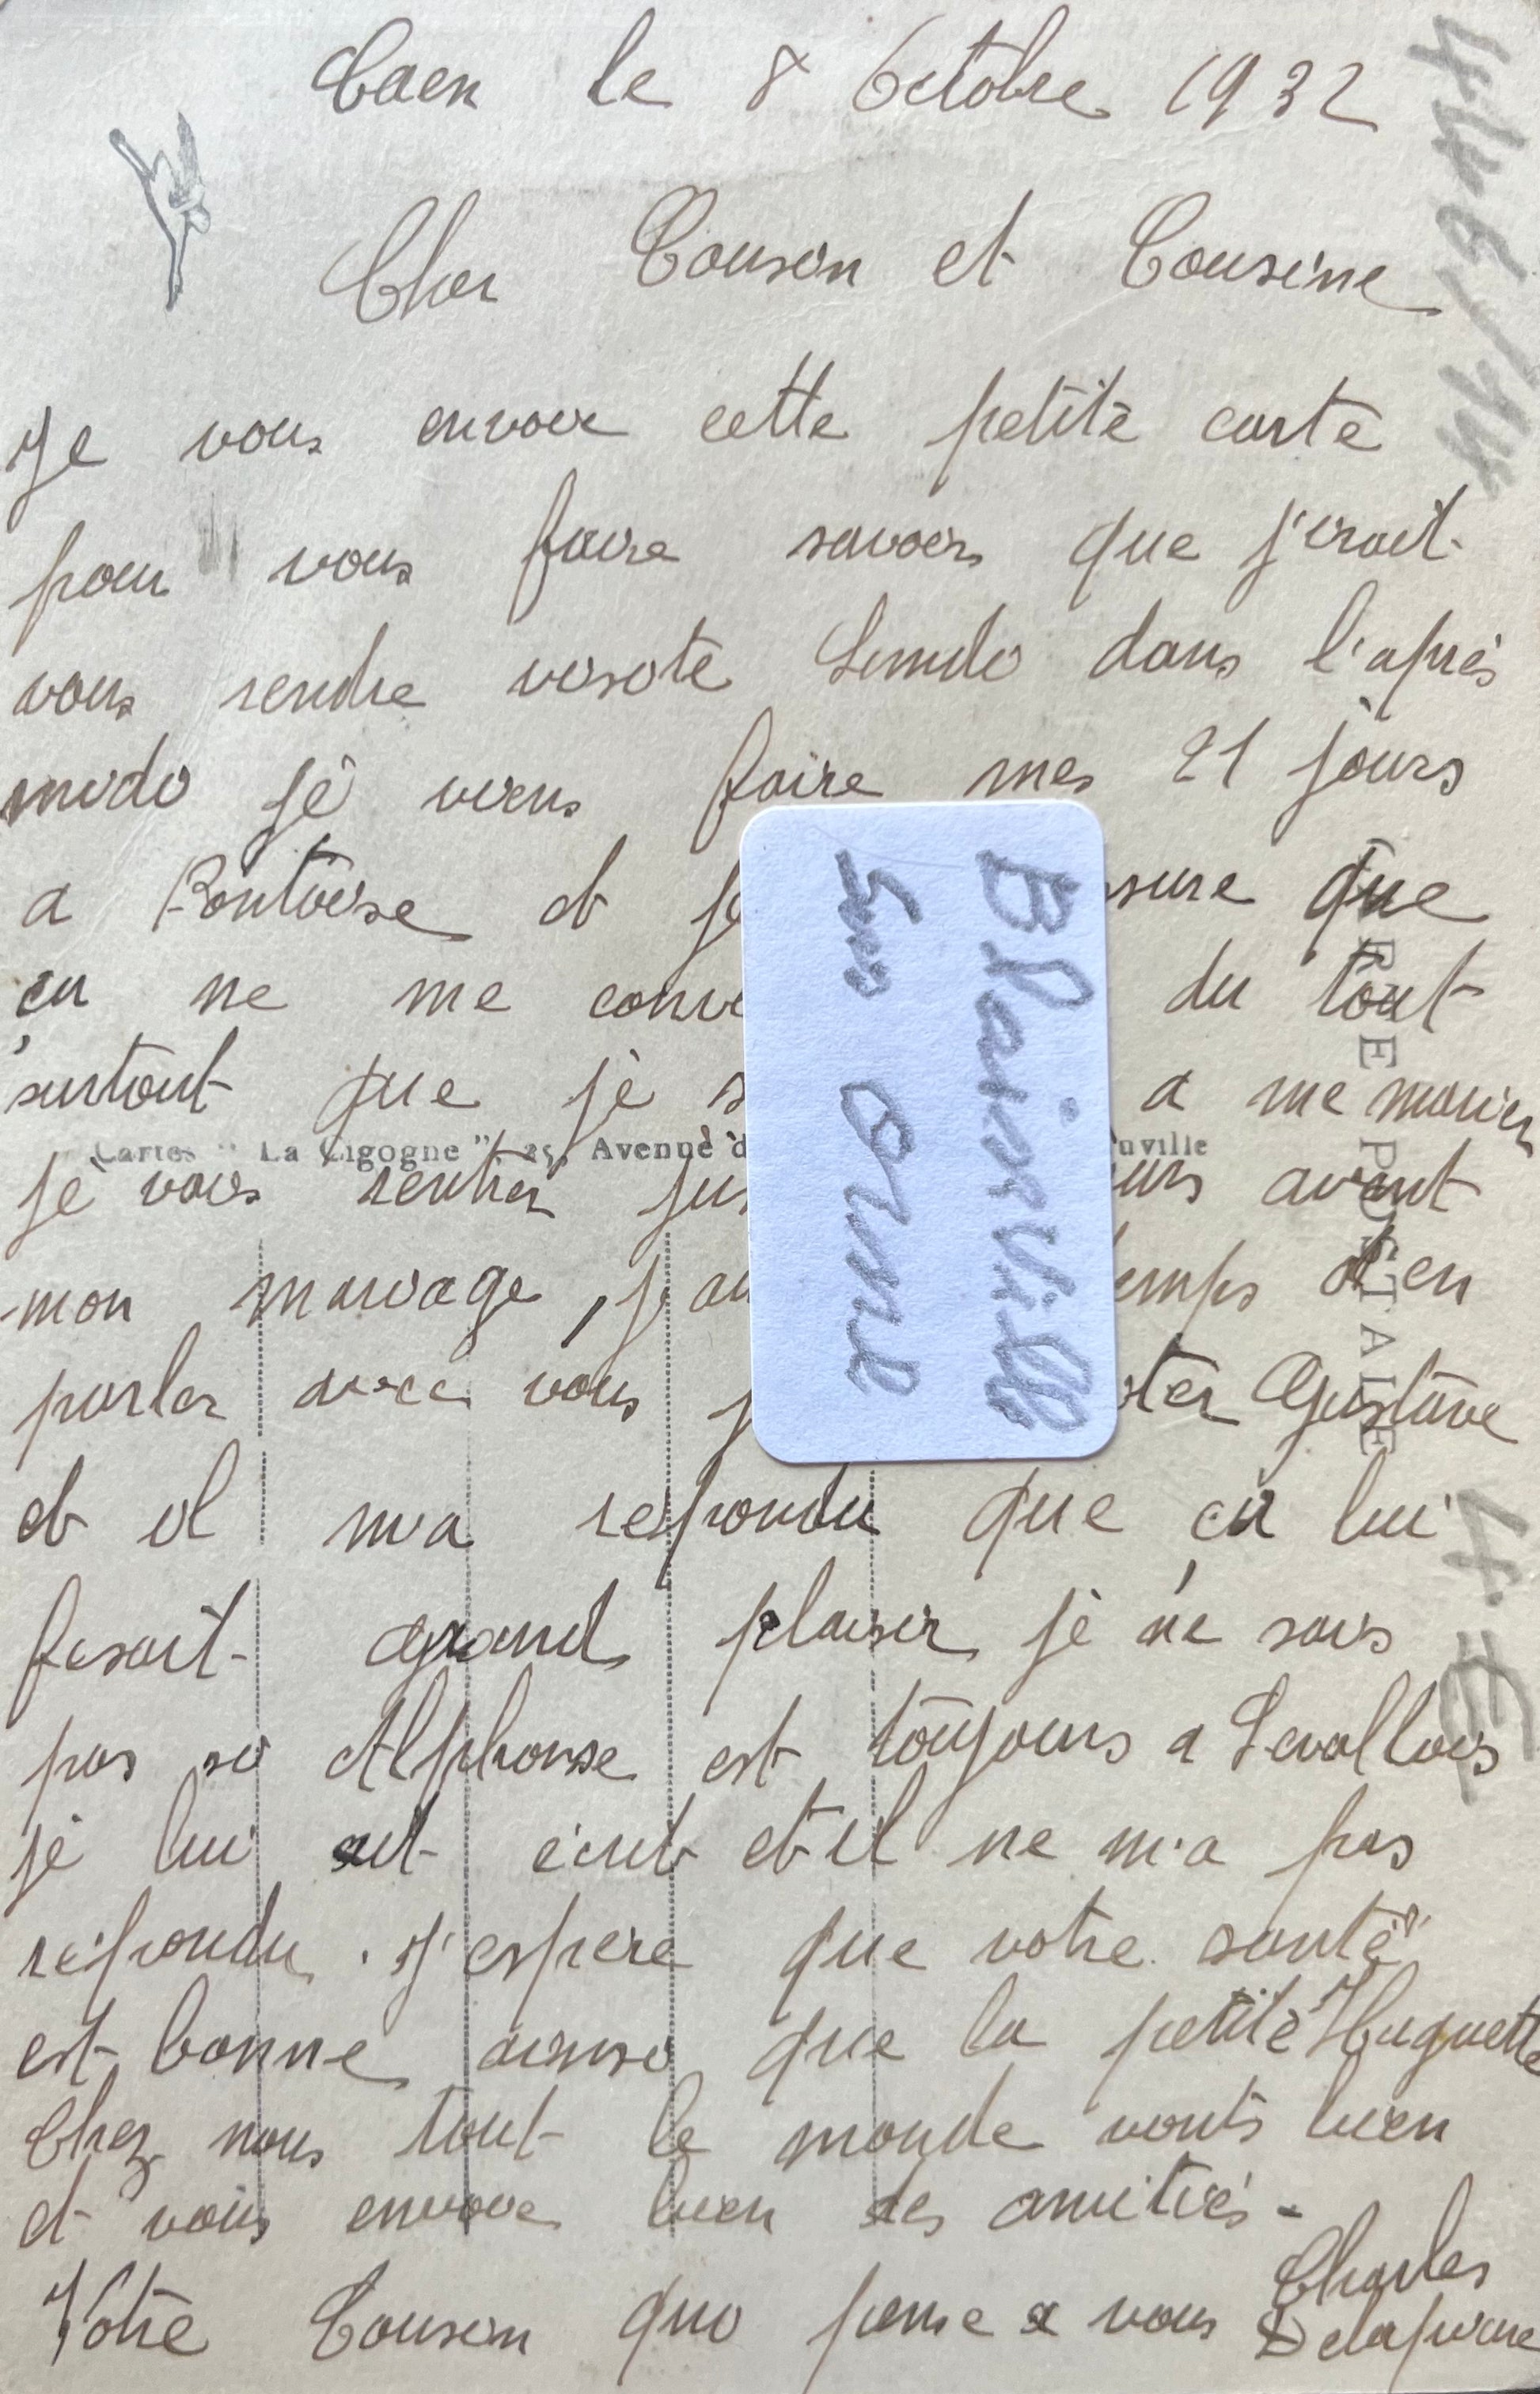 Caen le 8 Octobre 1932
Cher Cousin et Cousine
Je vous envoie cette petite carte
pour vous faire savoir que j'irait
vous rendre visite Lundi dans l'après
midi je viens faire mes 21 jours
a Pontoise et je ssure que
ça ne me conv du tout
surtout que je s a me marier
Cartes "La Cigogne", Avenue d nville
je vais rentrer jus urs avant
mon mariage, j'au temps d'en
parler avec vous j iter Gustave
et il m'a repondu que ça lui
fesait grand plaisir je ne sais
pas si Alphonse est toujours a Levallois
je lui ait écrit et il ne m'a pas
répondu. J'espere que votre santé
est bonne ainsi que la petite Huguette
Chez nous tout le monde vonts bien
et vous envoie bien des amitiés -
Votre Cousin qui pense a vous Charles
Delapierre
Blainville
sur orne